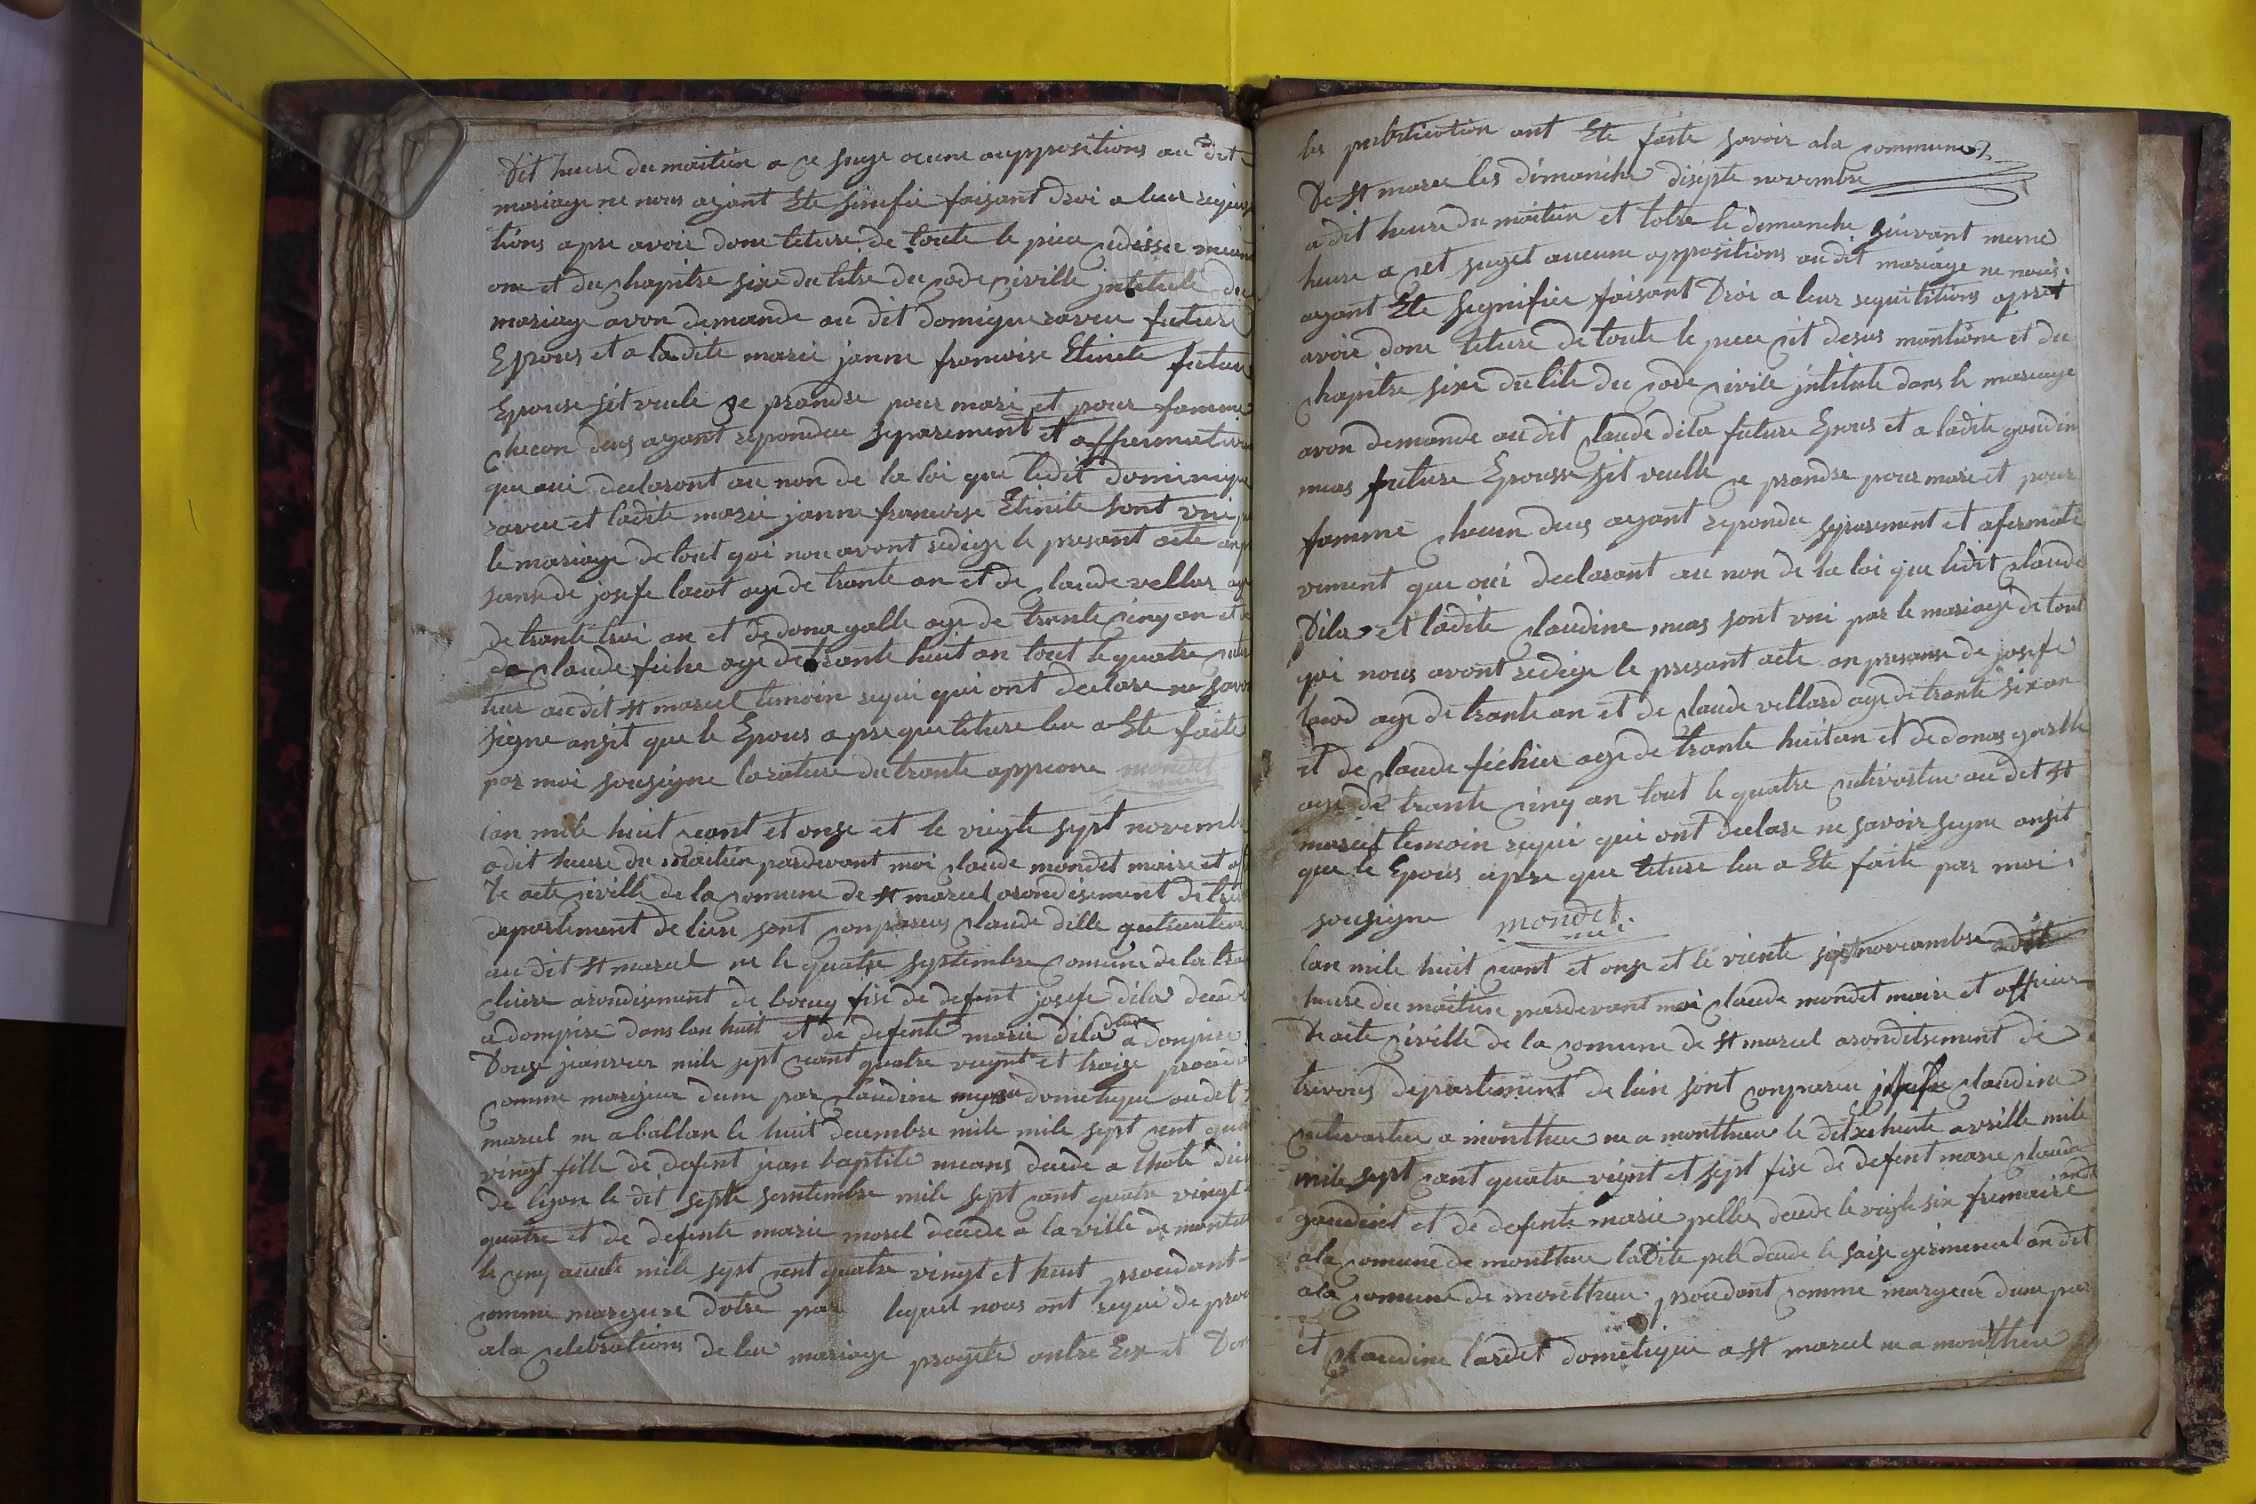 Dit heure du maitin a ce suge ocune auppositions au dit
mariage ne nous ajant Ete sinifie faisant droi a leur requis
tions apre avoir done leture de toute le piece
one et du chapitre sixe du titre du code civille jntitule du
mariage avon demande au dit domique raveu future
Epous et a ladite marie janne franroise Etinete future
Epouse sit veule se prandre pour mari et pour famme
checon deus ayant reponduu separement et affermative
que oui declaront au non de la loi que ledit dominique
raveu et ladite marie janne francoise Etinite sont uni
le mariage de tout qoi nou avont redige le present acte anpr
sanse de josefe lacot age de trante an et de claude vellar age
de trante troi an et de dona galle age de trante cinq an et
de claude fiche age de trante huit an tout le quatre
teur au dit st marcel temoin requi qui ont declare ne savoir
signe ansit que le Epous apre que leture leu a Ete faite
par moi sousigne la rature du trante approuve mondet
lan mile huit cent et onze et le vingte sept novemb
a dit heure du maitin pardevant moi claude mondet maire et off
de acte civille de la comune de st marcel arondisement de trev
departement de lein sont conpareus claude dille qultivateur
au dit st marcel ne le quatre septembre comune de la tra
cliere arondisement de bourg fise de defent josefe dila decede
a dompire dans lan huit et de defente marie dila decede a donpire
Douze jeanvier mile sept cent quatre vingt et traize proced
comme margeur dune par claudine meas dometique au dit st
marcel ne a ballan le huit decembre mile mile sept cent qua
vingt fille de defent jean baptite means decede a lhote dieu
de lyon le dit septe semtembre mile sept cent quatre vingt
quatre et de defente marie morel decede a la ville de montelu
le cinq aoute mile sept cent quatre vingt et huit procedant
comme margeure dotre par lequel nous ont requi de proc
ala celebrations de leu mariage progete antre Eex et Don
les publication ont Ete faite savoir ala commune
De st marcel les dimanche disepte novembre
a dit heure du maitin et lotre le dimanche suivant meme
heure a cet suget aucune oppositions audit mariage ne nous
ayant Ete segnifiee faisant Droi a leur requititions apret
avoir done leture de toute le piece cit desus mantione et du
chapitre sixe du tite du code civile jntitule dans le mariage
avon demande au dit claude dila future Epous et a ladite gaudin
meas future Epouse sit veulle ce prandre pour mari et pour
famme checun deus ayant repondu separement et afermati
vement que oui declaront au non de la loi que ledit claude
Dila et ladite claudine meas sont uni par le mariage de tout
qoi nous avont redige le presant acte an presanse de josefe
lacod age de trante an et de claude vellard age de trante six an
et de claude fichier age de trante huit an et de donas garlle
age de trante cinq an tout le quatre cultivateur au dit st
marcel temoin requi qui ont declare ne savoir segne ansit
que le Epous apre que leture leu a Ete faite par moi
sousigne mondet
lan mile huit cent et onze et le viente sept novembre adit
heure du maitin pardevant moi claude mondet maire et officier
de acte civille de la comune de st marcel arondisement de
trevous departement de lain sont conpareu josefe claudine
cultivateur a monthieu ne a monthieu le avrille mile
mile sept cant quatre vignt et sept fise de defent marie claude
gaudint et de defente marie pelle decede le vingte six frimaire
ala comune de montheu ladite pele decede le saise germinal an dit
ala comune de montheu procedant comme margeur dune par
et claudine lardet dometique a st marcel ne a montheu